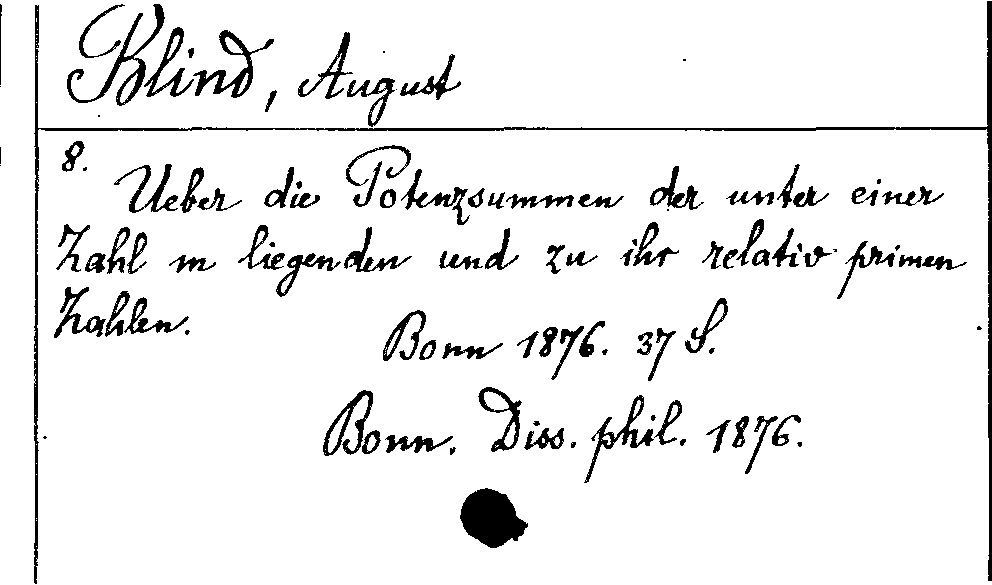 Blind, August
8.
Ueber die Potenzsummen der unter einer
Zahl m liegenden und zu ihr relativ primen
Zahlen.
Bonn 1876. 37 S.
Bonn. Diss. phil. 1876.